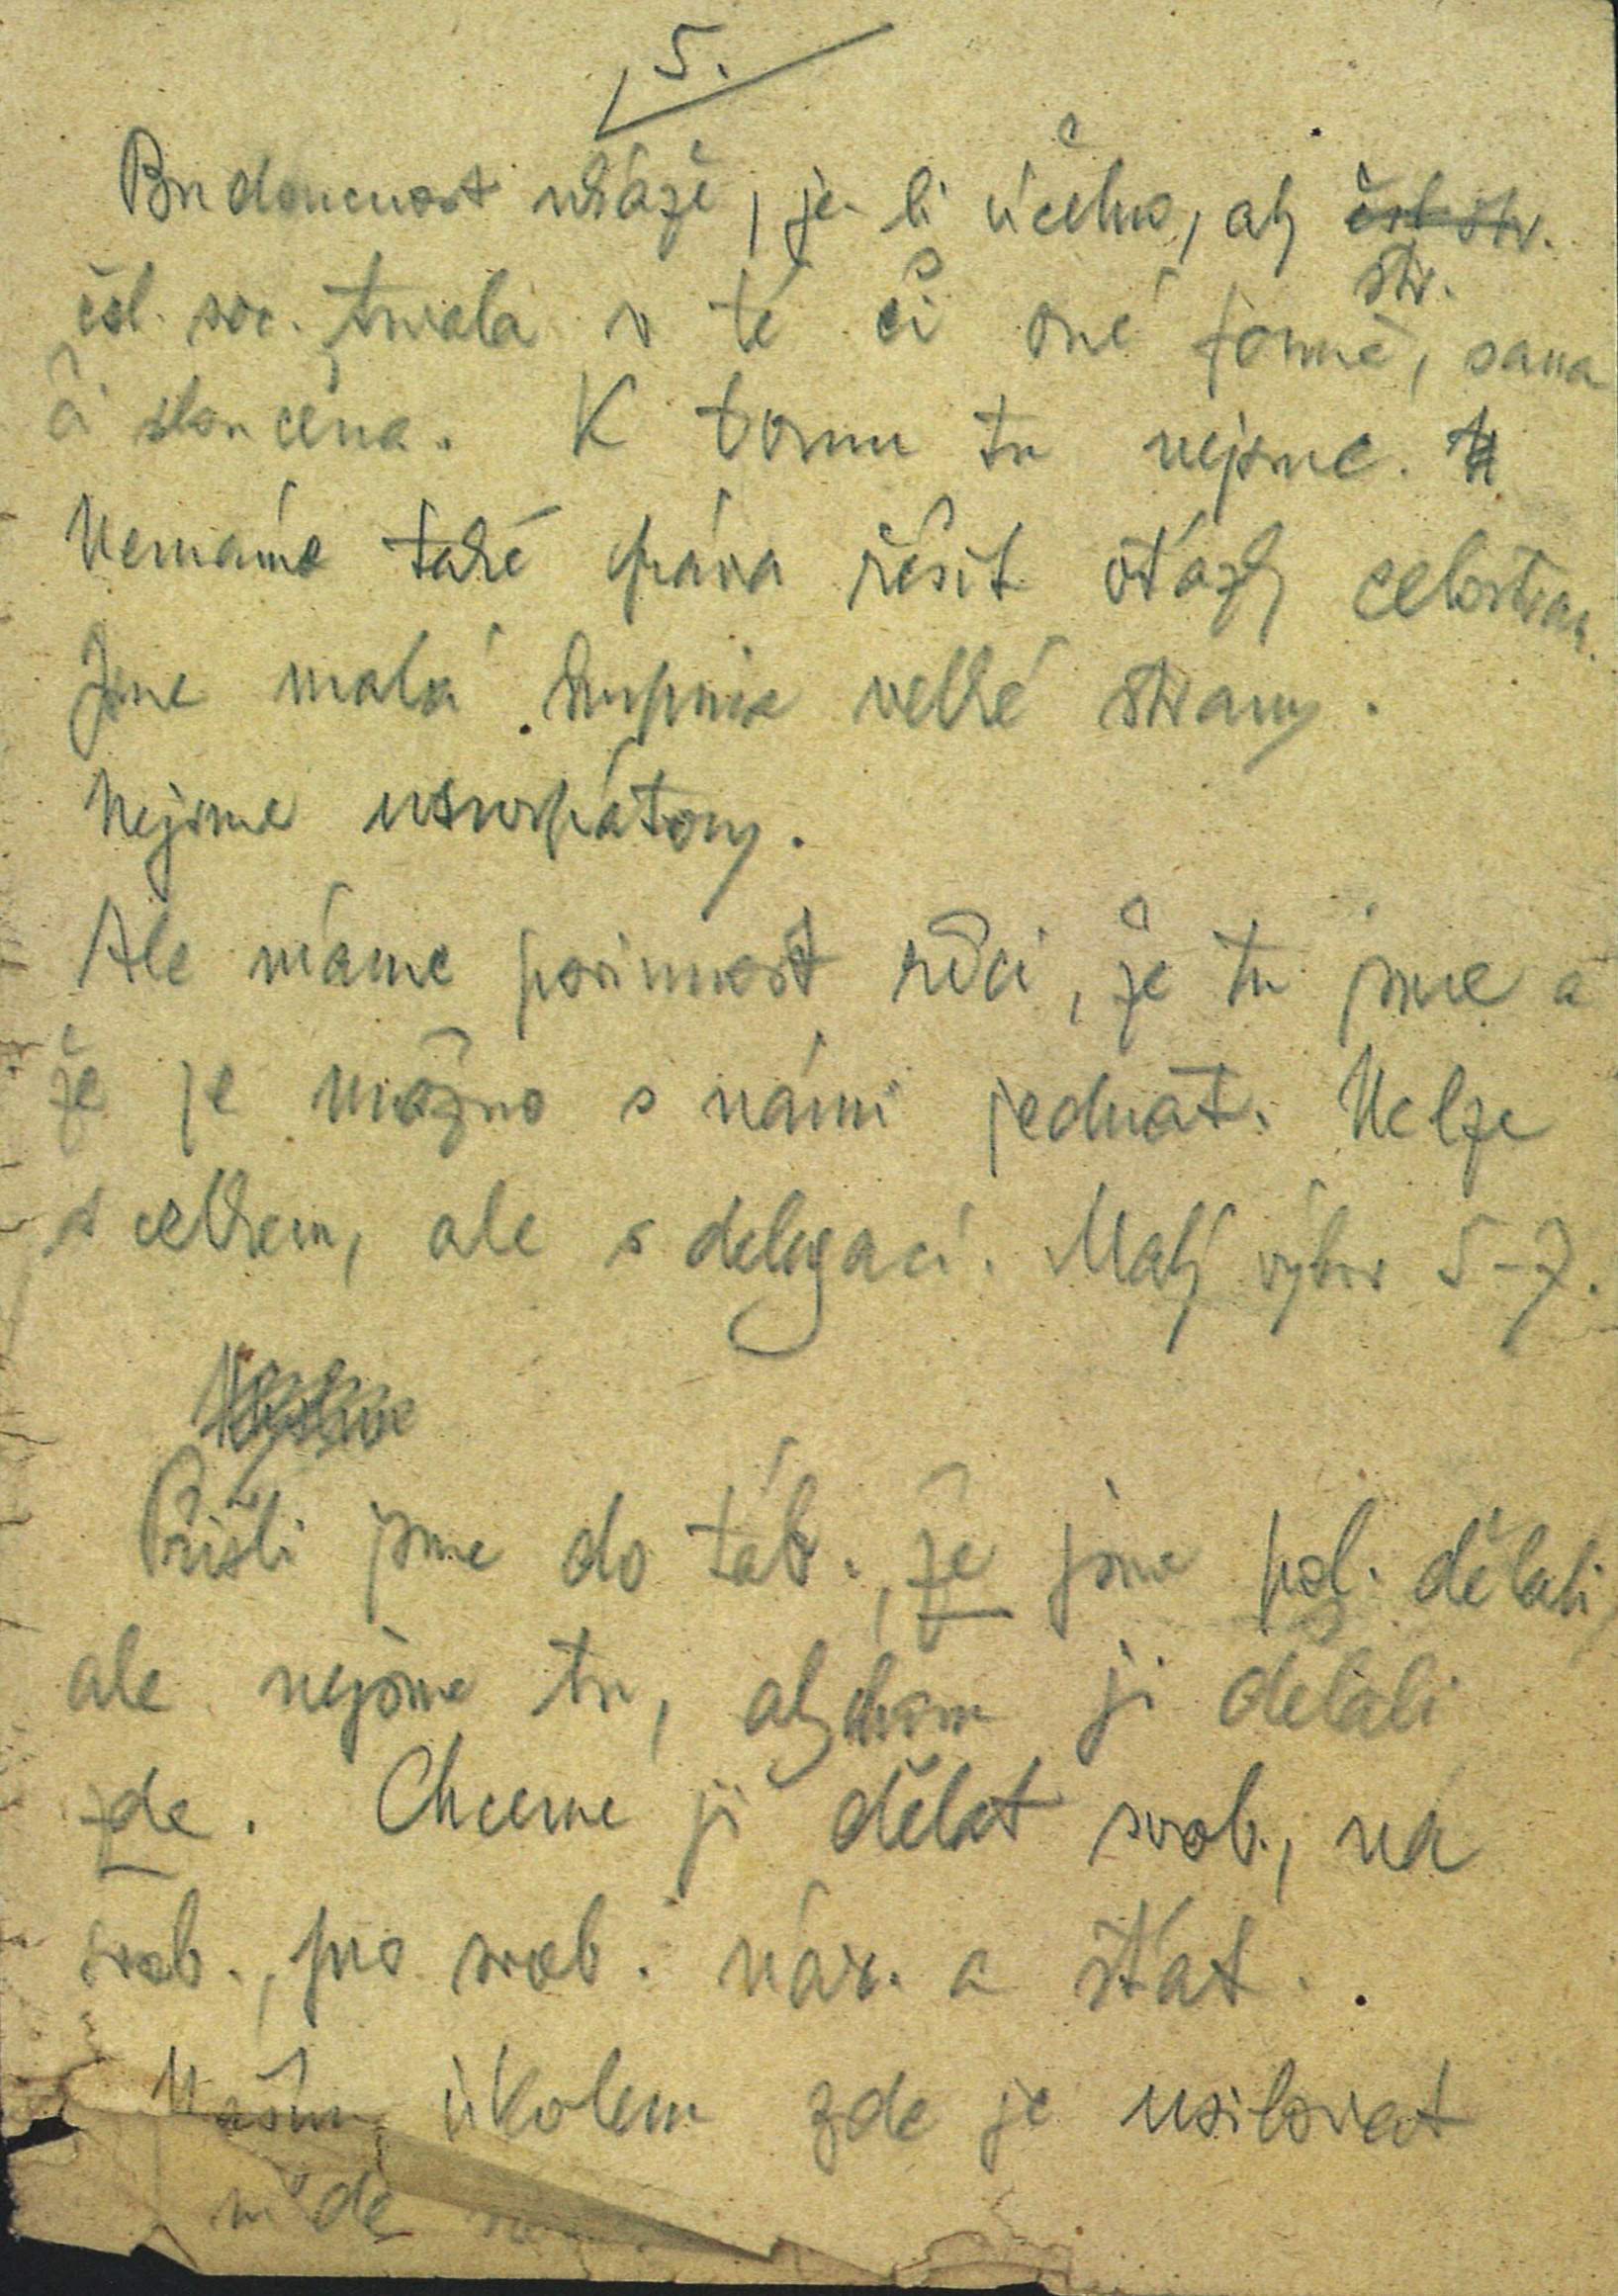 5.
Budoucnost ukáže, je-li účelno, aby čsl str.
str.
čsl. soc. trvala v té či oné formě, sama
či sloučena. K tomu tu nejsme.
Nemáme také práva řešit otázky celostran.
Jsme malá skupinka velké strany.
Nejsme usurpátory.
Ale máme povinnost říci, že tu jsme a
že je možno s námi jednat. Nelze
s celkem, ale s delegací. Malý výbor 5-7.
Přišli jsme do táb., že jsme pol. dělali,
ale nejsme tu, abychom ji dělali
zde. Chceme ji dělat svob., na
svob., pro svob. nár. a stát.
Naším úkolem zde je usilovat